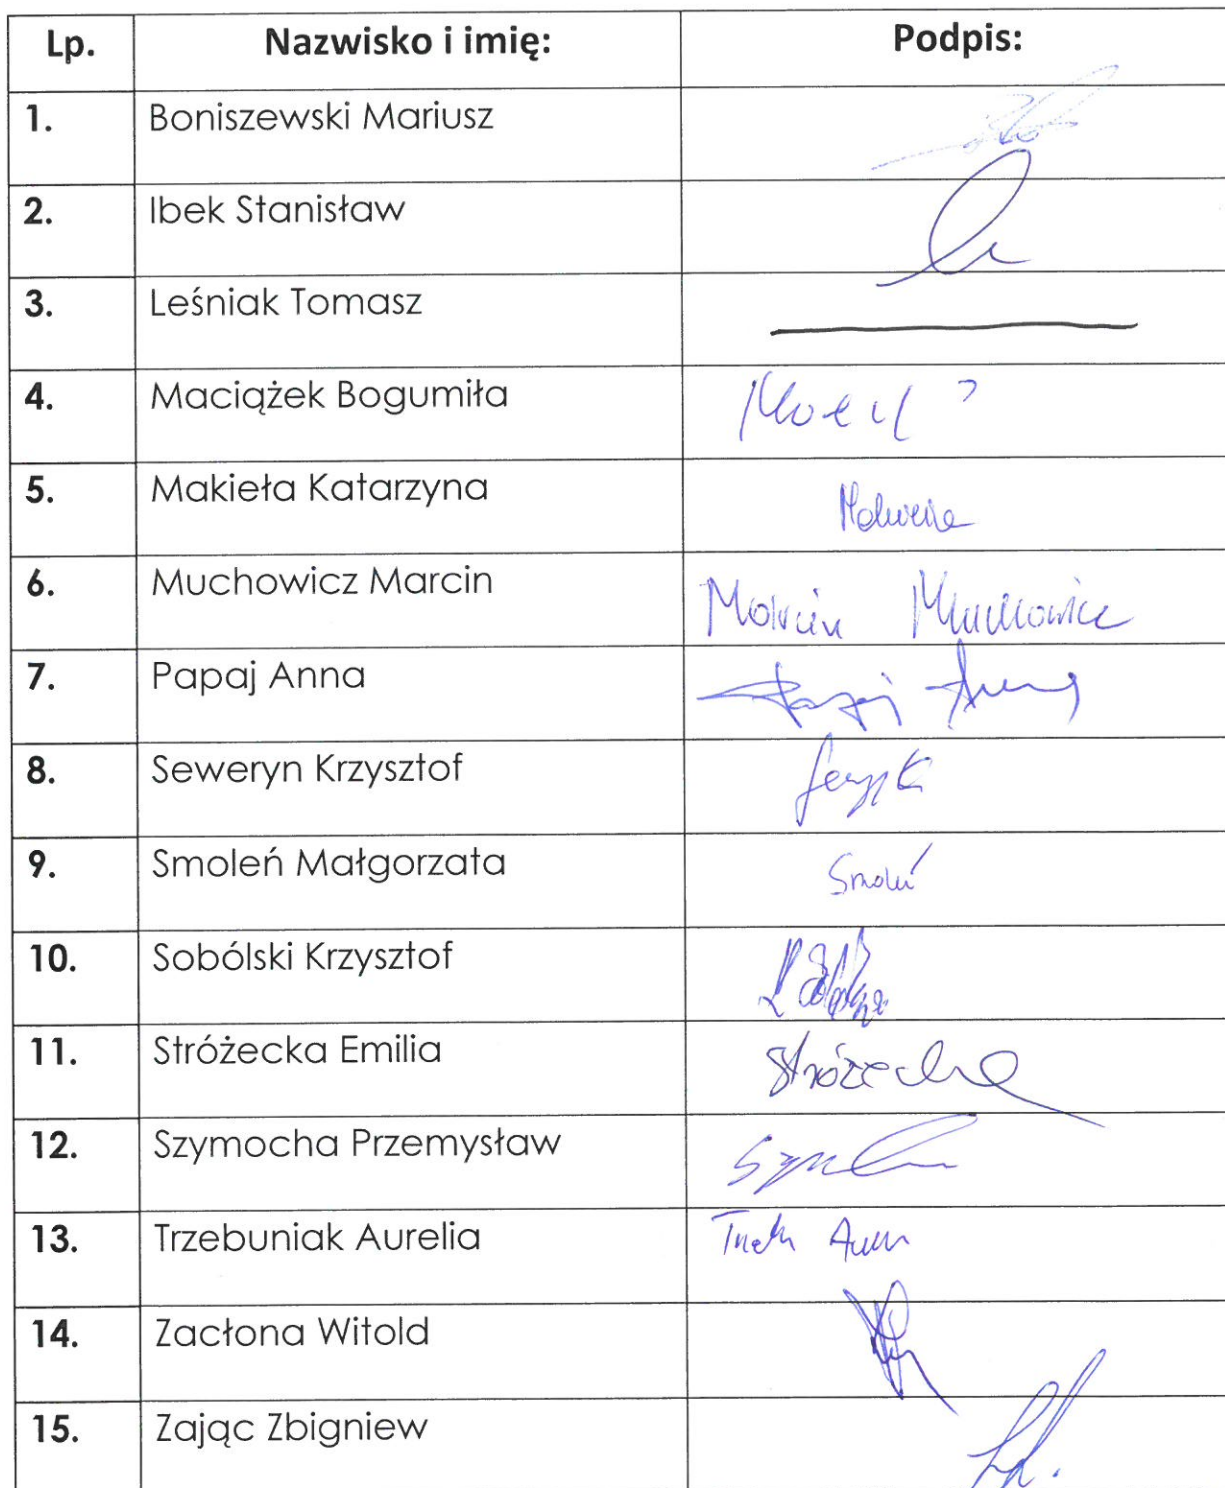 Lp. Nazwisko i imię: Podpis:
1. Boniszewski Mariusz
2. Ibek Stanisław
3. Leśniak Tomasz
4. Maciążek Bogumiła
5. Makieła Katarzyna
6. Muchowicz Marcin Marcin Muchowicz
7. Papaj Anna Papaj Anna
8. Seweryn Krzysztof
9. Smoleń Małgorzata Smoleń
10. Sobólski Krzysztof
11. Stróżecka Emilia Stróżecka
12. Szymocha Przemysław
13. Trzebuniak Aurelia
14. Zacłona Witold
15. Zając Zbigniew